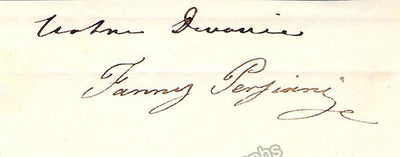 Votre Devouée
Fanny Persiani